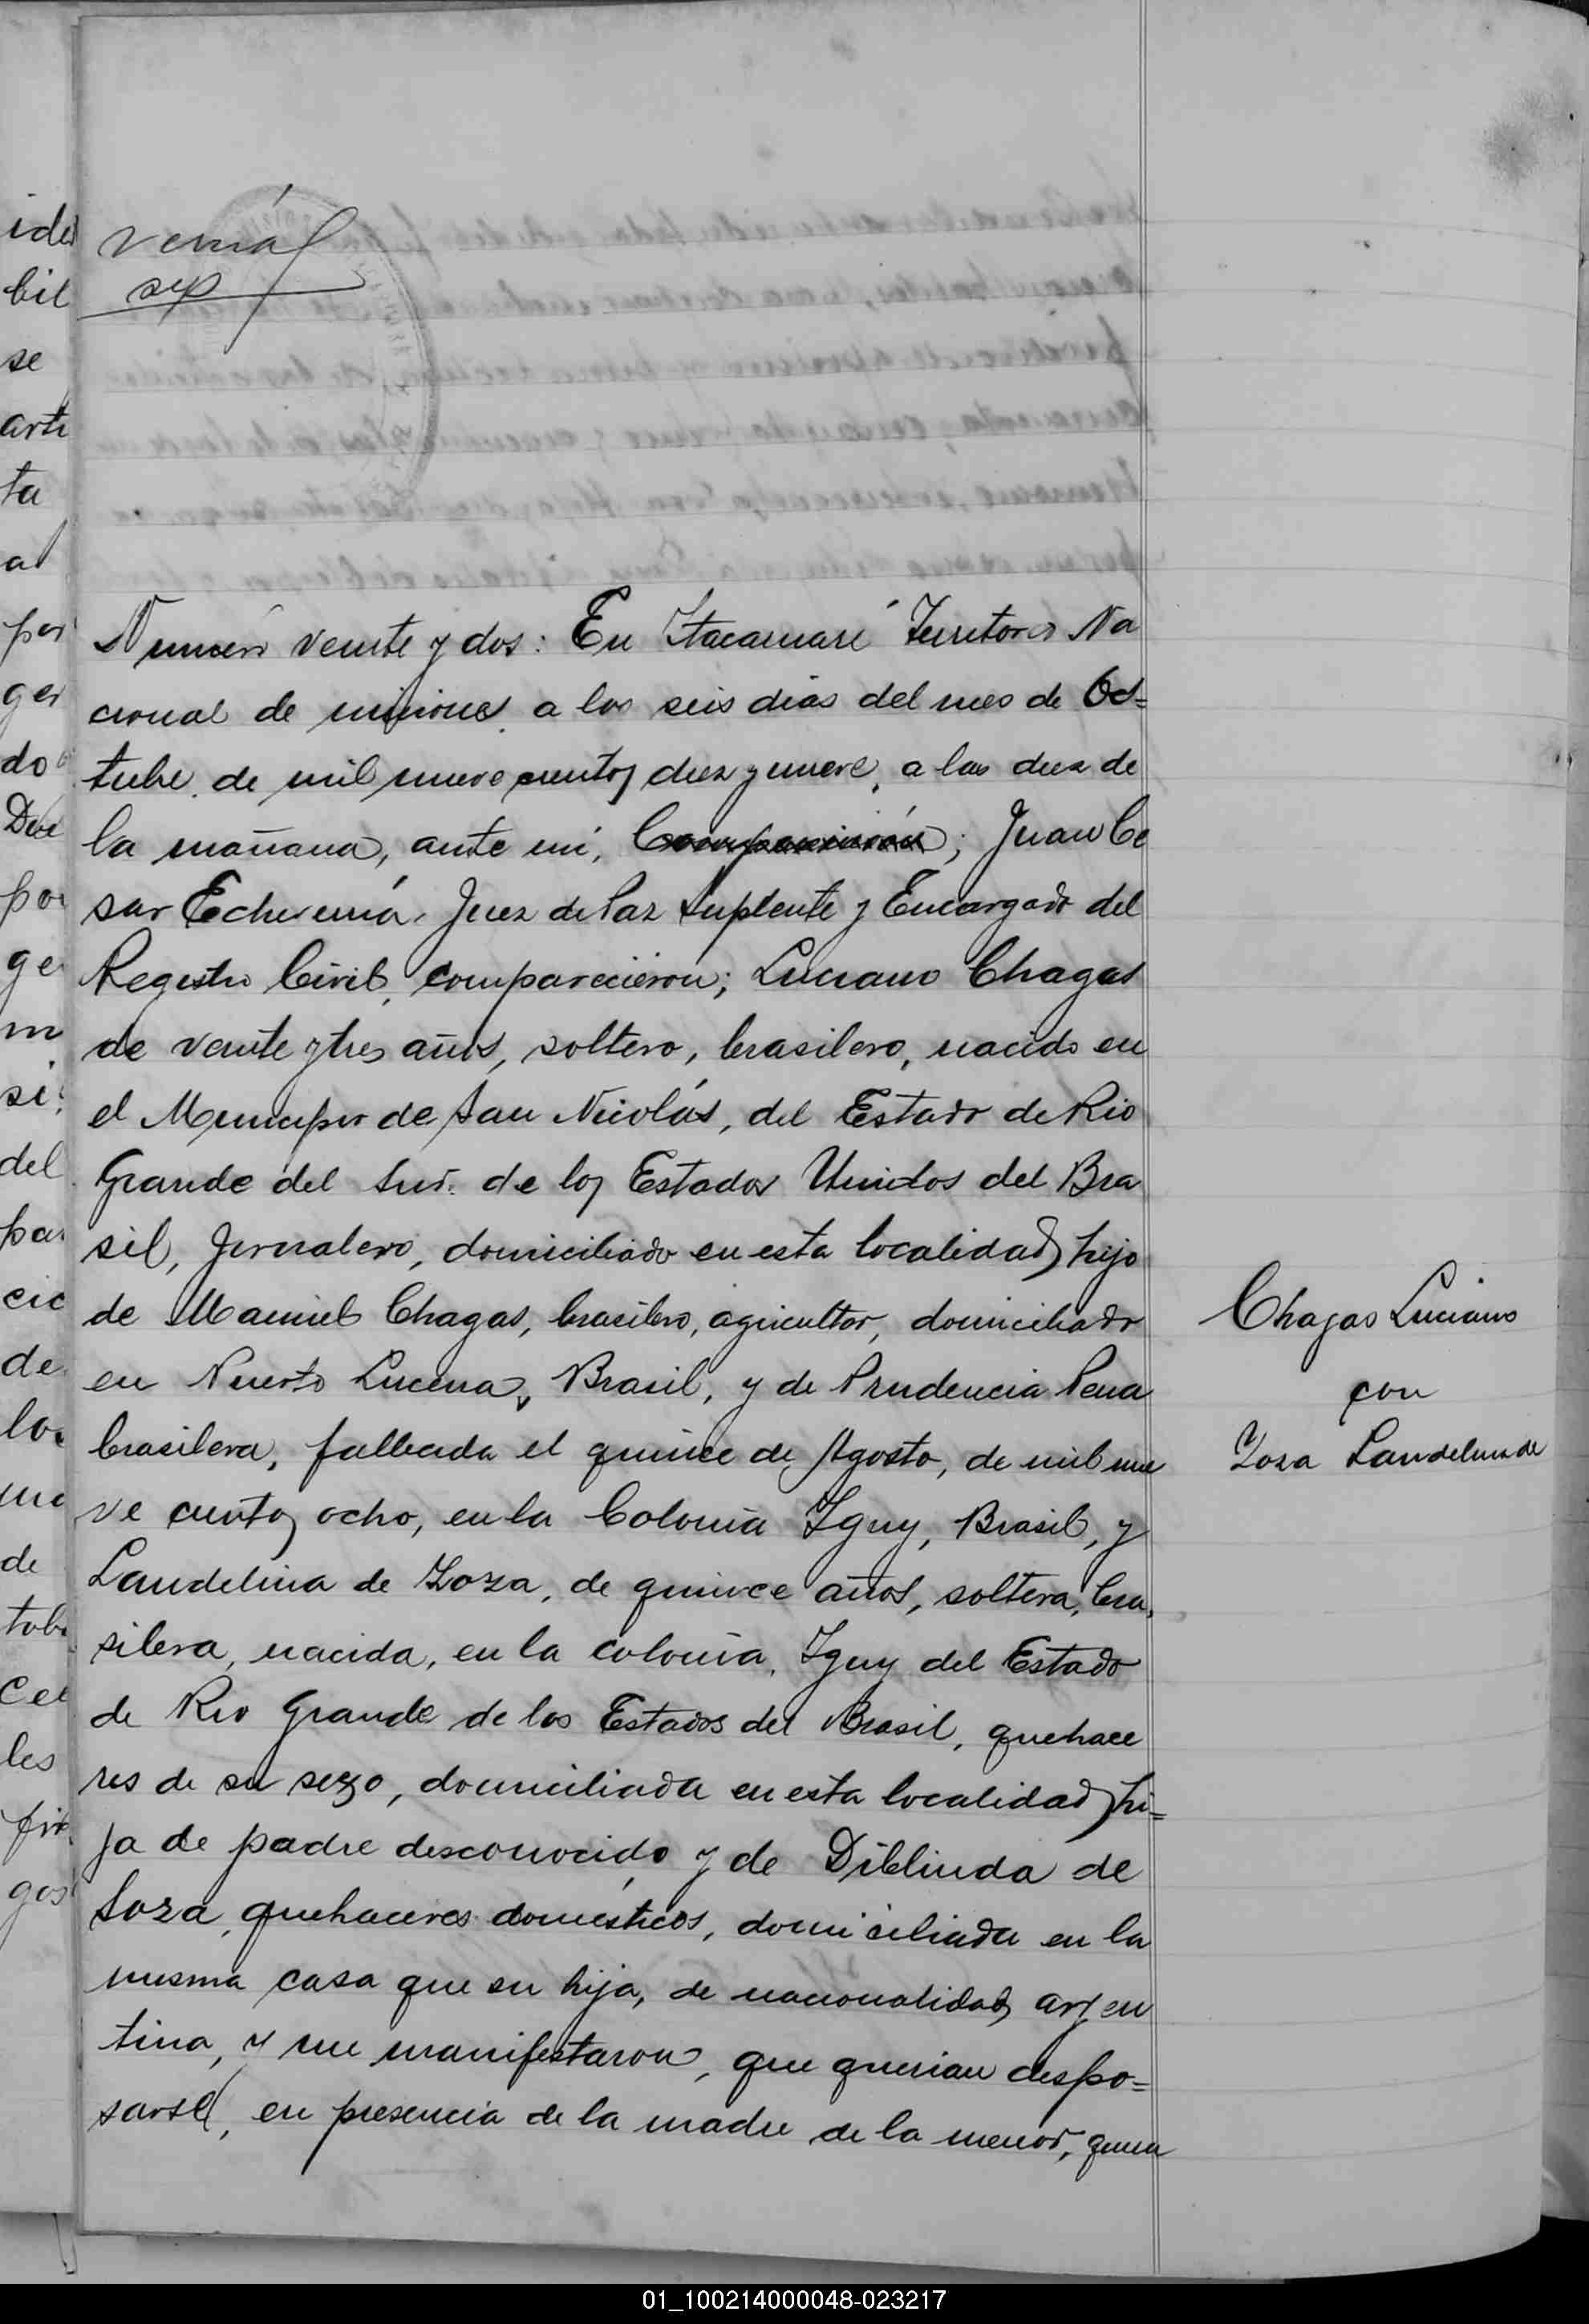 ide
bil
se
arti
ta
al
por
ger
do
Dve
por
ge
m
si
del
pa
cic
de
lo
de
tub
cel
les
fir
gos
Número veinte y dos: En Itacaruaré Territorio Na
cional de misiones, a los seis dias del mes de Oc=
tubre, de mil nueve cientos diez y nueve, a las diez de
la mañana, ante mi, Comparecieron; Juan Ce
sar Echeverria, Juez de Paz Suplente y Encargado del
Registro Civil, comparecieron; Luciano Chagas
de veinte y tres años, soltero, brasilero, nacido en
el Municipio de San Nicolás, del Estado de Rio
Grande del Sur. de los Estados Unidos del Bra
sil, Jornalero, domiciliado en esta localidad, hijo
de Manuel Chagas, brasilero, agricultor, domiciliado
en Puerto Lucena, Brasil, y de Prudencia Pena
brasilera, fallecida el quince de Agosto, de mil nue
ve cientos ocho, en la Colonia Iguy, Brasil, y
Landelina de Zoza, de quince años, soltera, bra,
silera, nacida, en la colonia, Iguy del Estado
de Rio Grande de los Estados del Brasil, quehace
res de su sexo, domiciliada en esta localidad, hi=
ja de padre desconocido y de Diblinda de
Soza, quehaceres domésticos, domiciliada en la
misma casa que su hija, de nacionalidad argen
tina, y me manifestaron, que querian despo=
sarse, en presencia de la madre de la menor, quien
Chagas Luciano
con
Zoza Landelina de
01_100214000048-023217